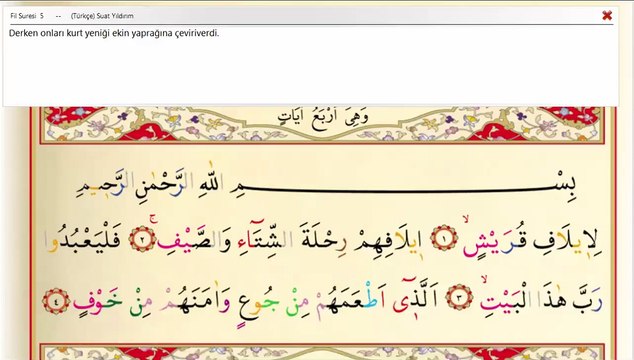 Fil Suresi 5 -- (Türkçe) Suat Yıldırım
Derken onları kurt yeniği ekin yaprağına çeviriverdi.
وَهِىَ اَرْبَعُ اٰيَاتٍ
بِسْــــــمِ اللّٰهِ الرَّحْمٰنِ الرَّح۪يمِ
لِا۪يلَافِ قُرَيْشٍۙ ﴿١﴾ ا۪يلَافِهِمْ رِحْلَةَ الشِّتَٓاءِ وَالصَّيْفِۚ ﴿٢﴾ فَلْيَعْبُدُوا
رَبَّ هٰذَا الْبَيْتِۙ ﴿٣﴾ اَلَّذ۪ٓى اَطْعَمَهُمْ مِنْ جُوعٍ وَاٰمَنَهُمْ مِنْ خَوْفٍ ﴿٤﴾